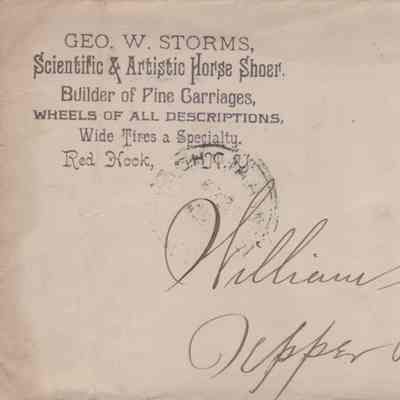 GEO. W. STORMS,
Scientific & Artistic Horse Shoer.
Builder of Fine Carriages,
WHEELS OF ALL DESCRIPTIONS,
Wide Tires a Specialty.
Red Hook, N. Y.
William
Tepper